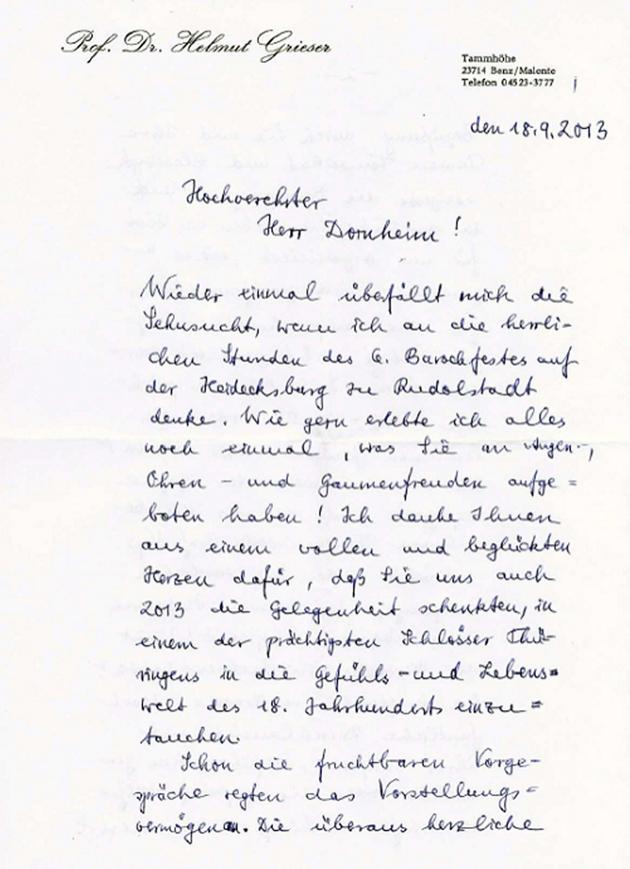 Prof. Dr. Helmut Grieser
Tammhöhe
23714 Benz/Malente
Telefon 04523-3777
den 18.9.2013
Hochverehrter
Herr Dornheim!
Wieder einmal überfällt mich die
Sehnsucht, wenn ich an die herrli-
chen Stunden des 6. Barockfestes auf
der Heidecksburg zu Rudolstadt
denke. Wie gern erlebte ich alles
noch einmal, was Sie an Augen-,
Ohren- und Gaumenfreuden aufge=
boten haben! Ich danke Ihnen
aus einem vollen und beglückten
Herzen dafür, daß Sie uns auch
2013 die Gelegenheit schenkten, in
einem der prächtigsten Schlösser Thü-
ringens in die Gefühls- und Lebens=
welt des 18. Jahrhunderts einzu=
tauchen.
Schon die fruchtbaren Vorge-
spräche regten das Vorstellungs=
vermögen an. Die überaus herzliche